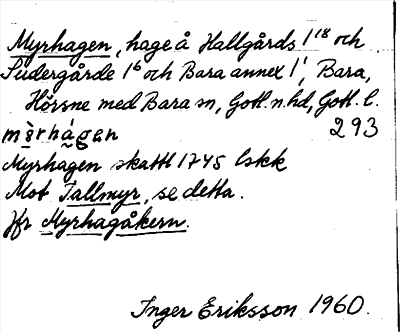 Myrhagen, hage å Hallgårds 1¹⁸ och
Sudergårde 1⁶ och Bara annex 1¹, Bara,
Hörsne med Bara sn, Gotl. n. hd, Gotl. l.
mỳrhá̰gen 293
Myrhagen skattl 1745 lskk
Mot Tallmyr, se detta.
Jfr Myrhagåkern.
Inger Eriksson 1960.